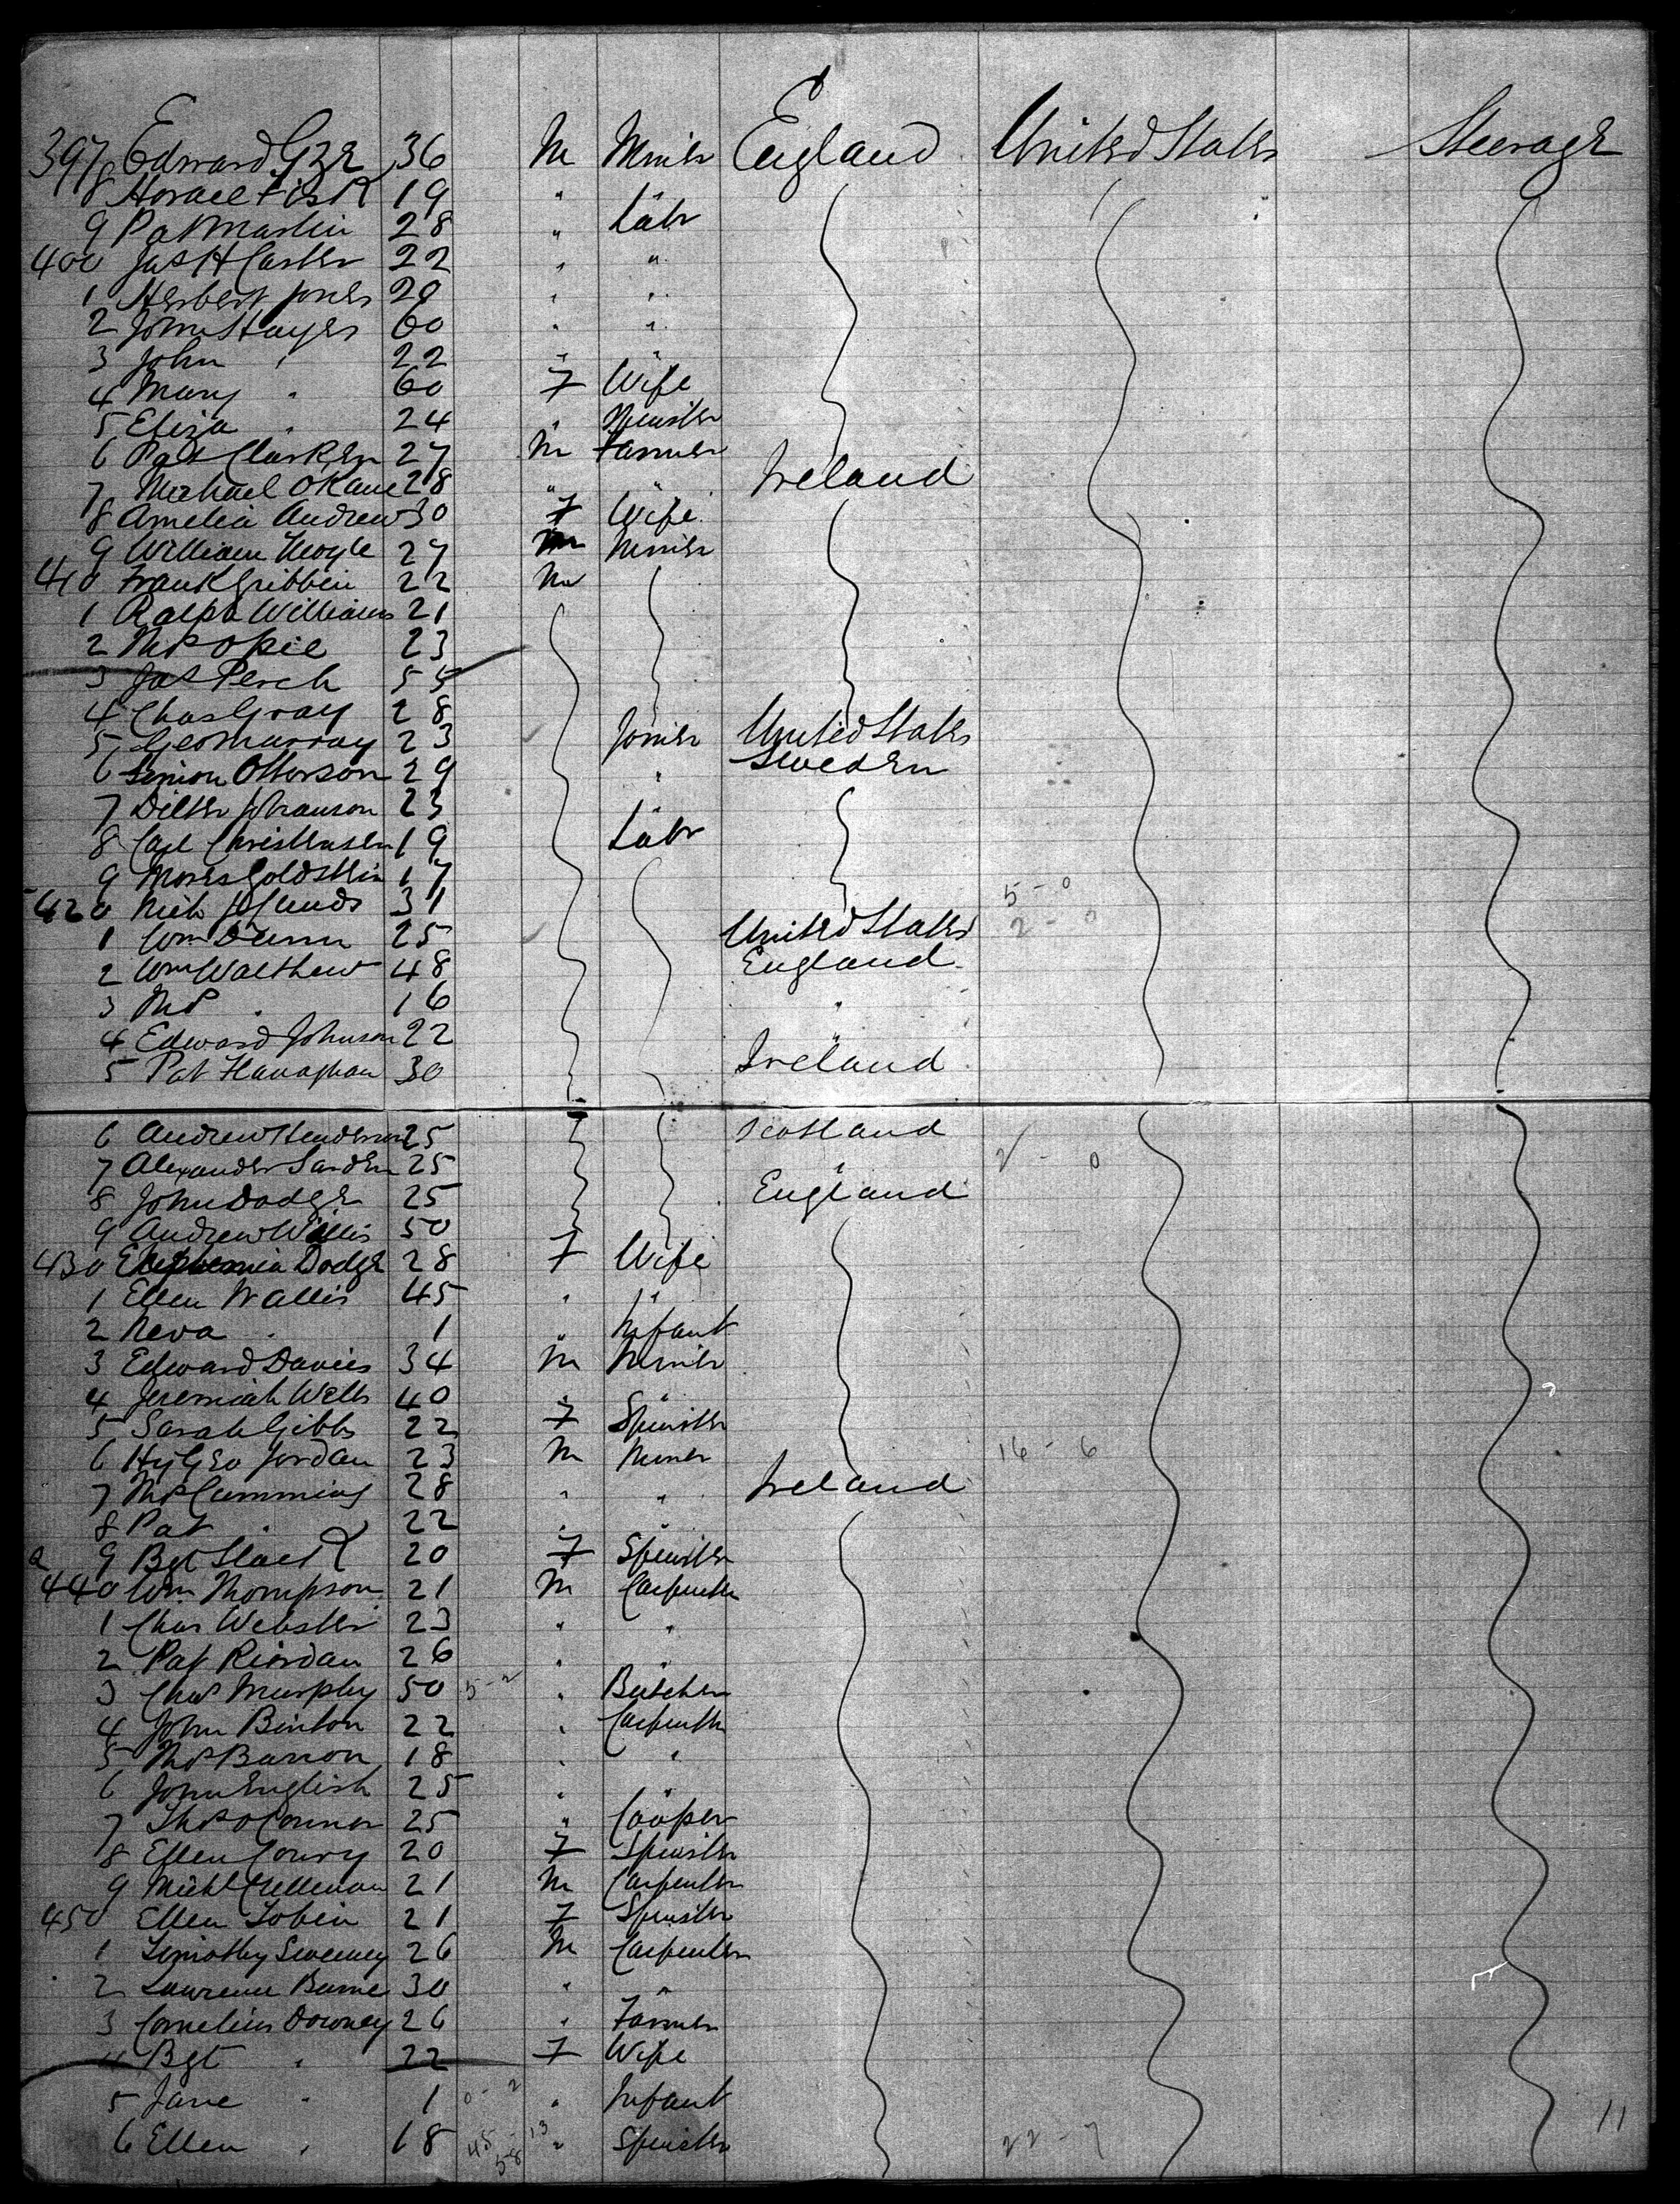 397 Edward 36 M Miner England United States Steerage
8 Horace Fisk 19 "
9 Pat Martin 28 " Labr
400 Jas H Carter 22 " "
1 Herbert Jones 29 " "
2 John Hayes 60 " "
3 John " 22 " "
4 Mary " 60 F Wife
5 Eliza " 24 " Spinster
6 Pat 27 M Farmer
7 Michael OKane 28 " " Ireland
8 Amelia Andrew 30 F Wife
9 William Hoyle 27 M Miner
410 Frank Gribbin 22 M
1 Ralph Williams 21
2 Ths Opie 23
3 Jas Perch 55
4 Chas Gray 28
5 Geo Murray 23 Joiner United States
6 Simon Otterson 29 " Sweden
7 Johanson 23 "
8 Carl Christensen 19 Labr
9 Moses Goldstein 17
420 31 5-0
1 Wm Dunn 25 United States 2-0
2 Wm Walthew 48 England
3 Ths " 16 "
4 Edward Johnson 22 "
5 Pat Hanaghan 30 Ireland
6 Andrew Henderson 25 Scotland
7 Alexander 25 " 2 - 0
8 John Dodge 25 England
9 Andrew Wallis 50
430 Euphemia Dodge 28 F Wife
1 Ellen Wallis 45 " "
2 Neva " 1 " Infant
3 Edward Davies 34 M Miner
4 Jeremiah Wells 40 " "
5 Sarah Gibbs 22 F Spinster
6 Hy Geo Jordan 23 M Miner 16 - 6
7 Ths Cummins 28 " " Ireland
8 Pat " 22 " "
9 Bgt Slack 20 F Spinster
440 Wm Thompson 21 M Carpenter
1 Chas Webster 23 " "
2 Pat Riordan 26 " "
3 Chas Murphy 50 5-2 " Butcher
4 John Binton 22 " Carpenter
5 Ths Barron 18 " "
6 John English 25 " "
7 Ths OConnor 25 " Cooper
8 Ellen 20 F Spinster
9 Michl 21 M Carpenter
450 Ellen Tobin 21 F Spinster
1 Timothy Sweeney 26 M Carpenter
2 Lawrence 30 " "
3 Cornelius Downey 26 " Farmer
4 Bgt " 22 F Wife
5 Jane " 1 0-2 " Infant
6 Ellen " 18 " Spinster 22-7
11